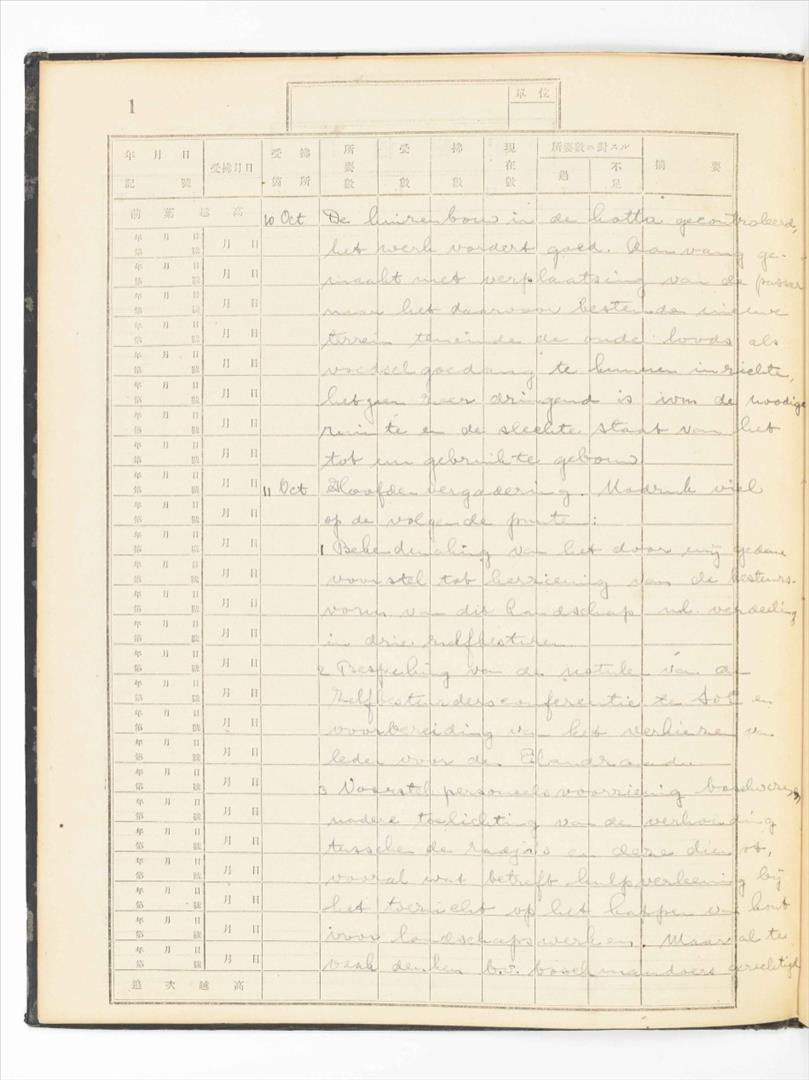 1
單位
年月日
記號
受拂月日
受拂箇所
所要數
受數
拂數
現在數
所要數ニ對スル
過
不足
摘要
前葉越高
10 Oct De huizenbouw in de kotta gecontroleerd,
het werk vordert goed. Aanvang ge-
maakt met verplaatsing van de passer
naar het daarvoor bestemde nieuwe
terrein teneinde de oude loods als
voedselgoedang te kunnen inrichte,
hetgeen zeer dringend is ivm de noodige
ruimte en de slechte staat van het
tot nu gebruikte gebouw
11 Oct Hoofdenvergadering. Nadruk viel
op de volgende punte:
1 Behandeling van het door mij gedane
voorstel tot herziening van de bestuurs-
vorm van dit landschap nl. verdeeling
in drie zelfbesturen
2 Bespreking van de notule van de
Zelfbestuurdersconferentie te SoE en
voorbereiding van het verkieze van
lede voor de Eilandraade
3 Voorstel personeelsvoorziening boschweze,
nadere toelichting van de verhouding
tusschen de radja's en deze dienst,
vooral wat betreft hulpverleening bij
het toezicht op het kappen van hout
voor landschapswerken. Maar al te
vaak denken b.v. boschmandoers gerechtigd
年月日
第號
月日
年月日
第號
月日
年月日
第號
月日
年月日
第號
月日
年月日
第號
月日
年月日
第號
月日
年月日
第號
月日
年月日
第號
月日
年月日
第號
月日
年月日
第號
月日
年月日
第號
月日
年月日
第號
月日
年月日
第號
月日
年月日
第號
月日
年月日
第號
月日
年月日
第號
月日
年月日
第號
月日
年月日
第號
月日
年月日
第號
月日
年月日
第號
月日
年月日
第號
月日
年月日
第號
月日
年月日
第號
月日
年月日
第號
月日
年月日
第號
月日
追次越高